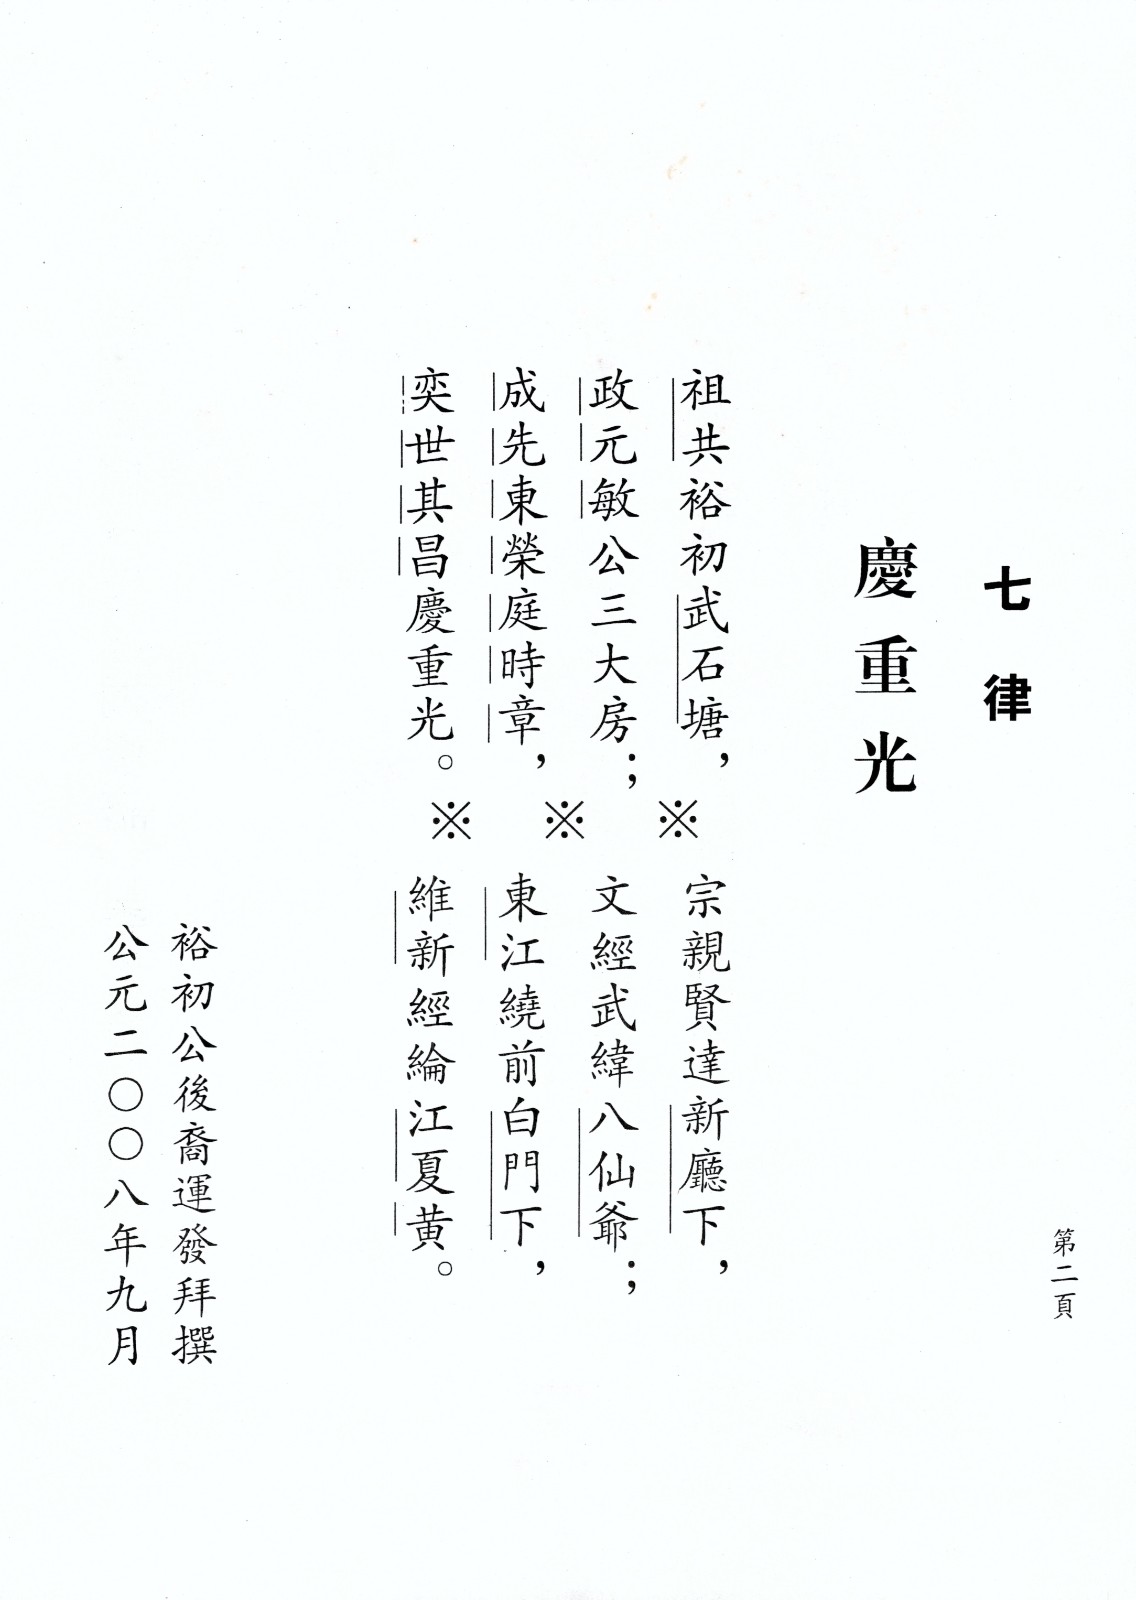 第二頁
七律
慶重光
祖共裕初武石塘，
宗親賢達新廳下，
政元敏公三大房；
文經武緯八仙爺；
成先東榮庭時章，
東江繞前白門下，
奕世其昌慶重光。
維新經綸江夏黄。
※※※
裕初公後裔運發拜撰
公元二〇〇八年九月